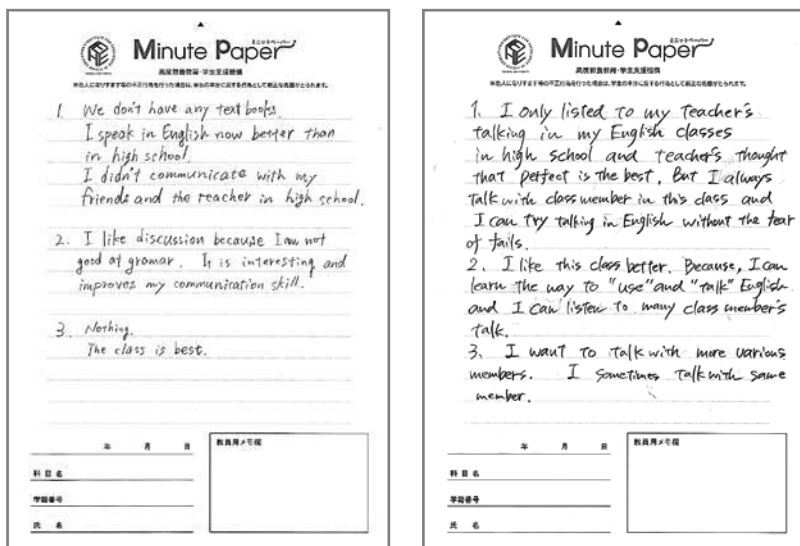 Minute Paper
ミニットペーパー
高度教養教育・学生支援機構
本色人になりすます等の不正行為を行った場合は、学生の本分に反する行為として厳正な処置がとられます。
1. We don't have any textbooks.
I speak in English now better than
in high school.
I didn't communicate with my
friends and the reacher in high school.
2. I like discussion because I am not
good at gramar. It is interesting and
improves my communication skill.
3. Nothing.
The class is best.
年 月 日
科目名
学籍番号
氏 名
教員用メモ欄
Minute Paper
ミニットペーパー
高度教養教育・学生支援機構
1. I only listed to my teacher's
talking in my English classes
in high school and teacher's thought
that perfect is the best. But I always
talk with class member in this class and
I can try talking in English without the fear
of fails.
2. I like this class better. Because, I can
learn the way to "use" and "talk" English
and I can listen to many class member's
talk.
3. I want to talk with more various
members. I sometimes talk with same
member.
年 月 日
科目名
学籍番号
氏 名
教員用メモ欄